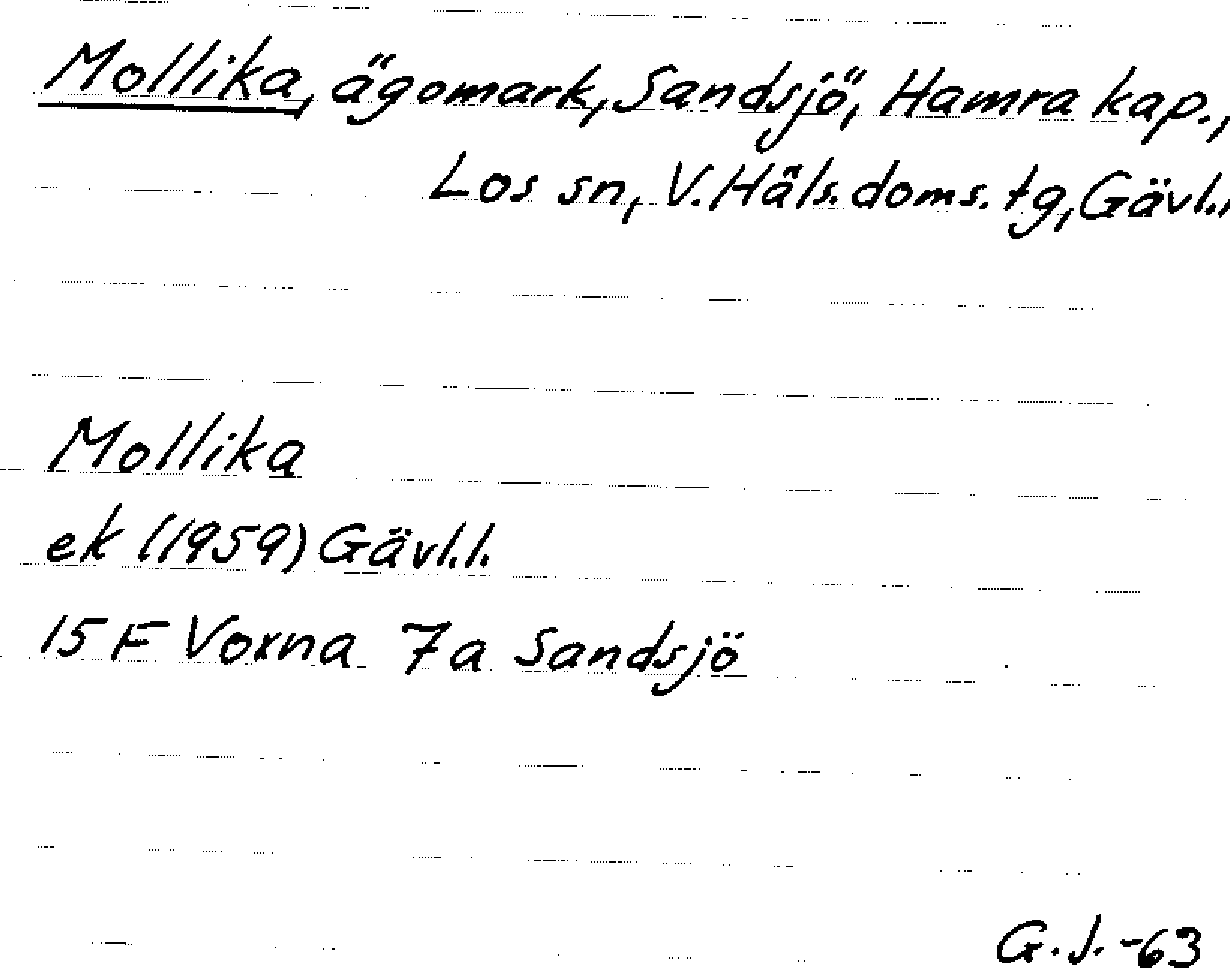 Mollika, ägomark, Sandsjö, Hamra kap.,
Los sn, V. Häls. doms. tg, Gävl.l
Mollika
ek (1959) Gävl.l.
15 F Voxna 7a Sandsjö
G.J. -63